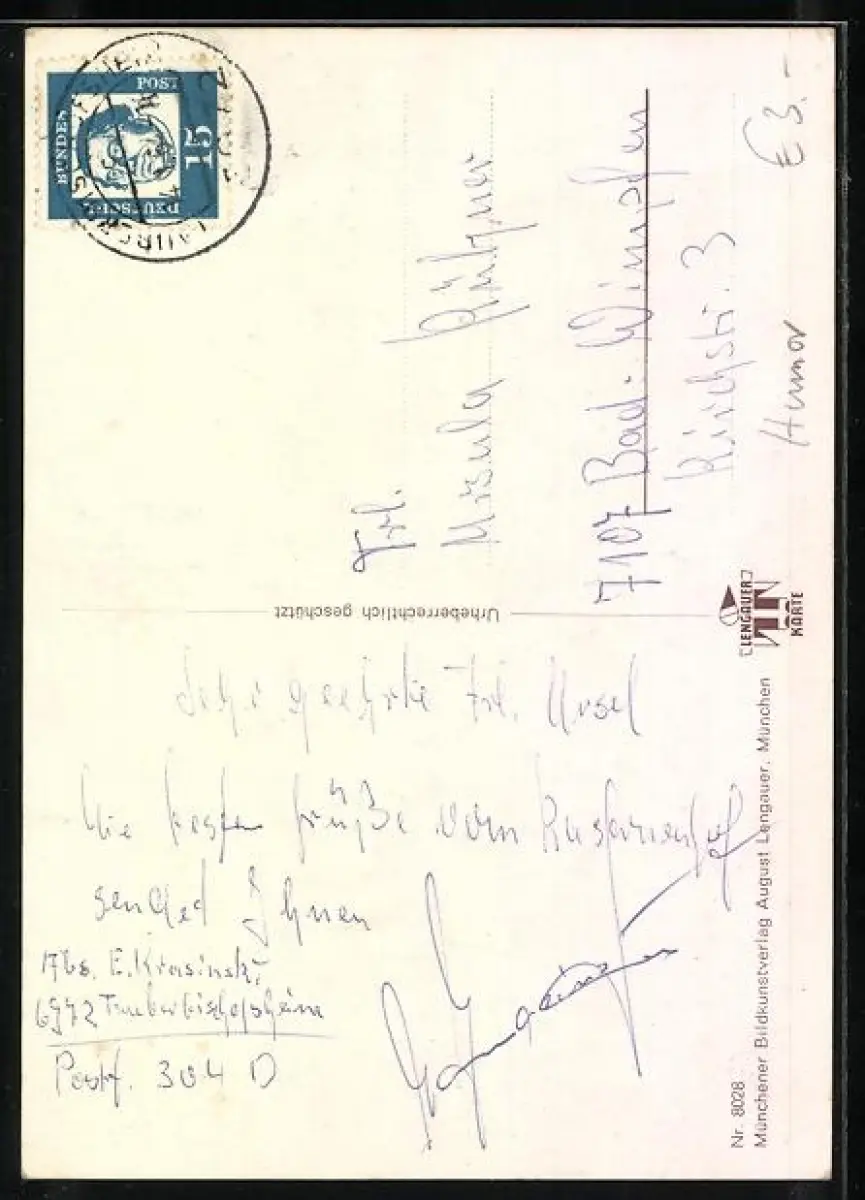 Sehr geehrte Frl. Ursel
Die besten Grüße vom
sendet Ihnen
Abs. E. Krasinski
6972 Tauberbischofsheim
Postf. 304 D
Nr. 8028
Münchener Bildkunstverlag August Lengauer, München
Urheberrechtlich geschützt
LENGAUER
KARTE
DEUTSCHE
BUNDES
POST
15
Frl.
Ursula
7107 Bad-Wimpfen
Kirchstr. 3
Humor
€ 3.-